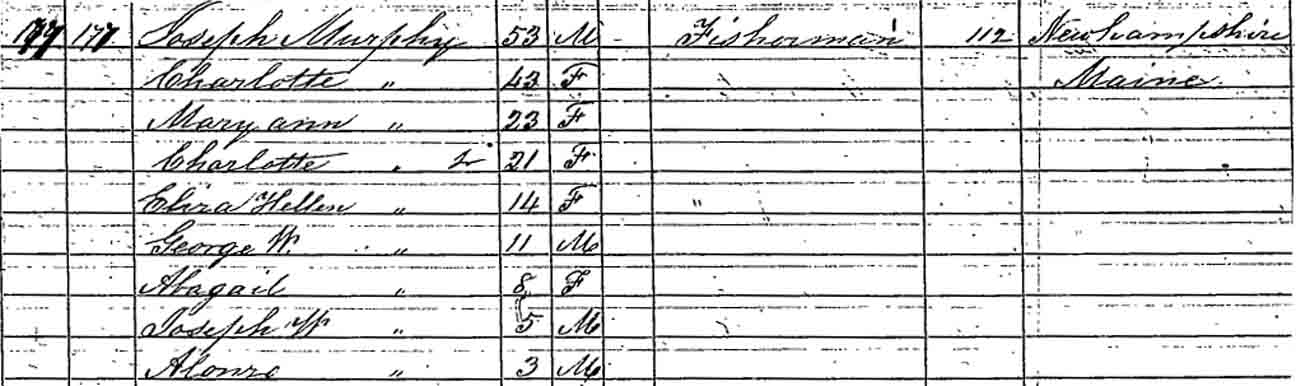 177 177 Joseph Murphy 53 M Fisherman 112 Newhampshire
Charlotte " 43 F Maine
Mary ann " 23 F
Charlotte " 2 21 F
Eliza Hellen " 14 F "
George W. " 11 M
Abagail " 8 F
Joseph W " 5 M
Alonzo " 3 M